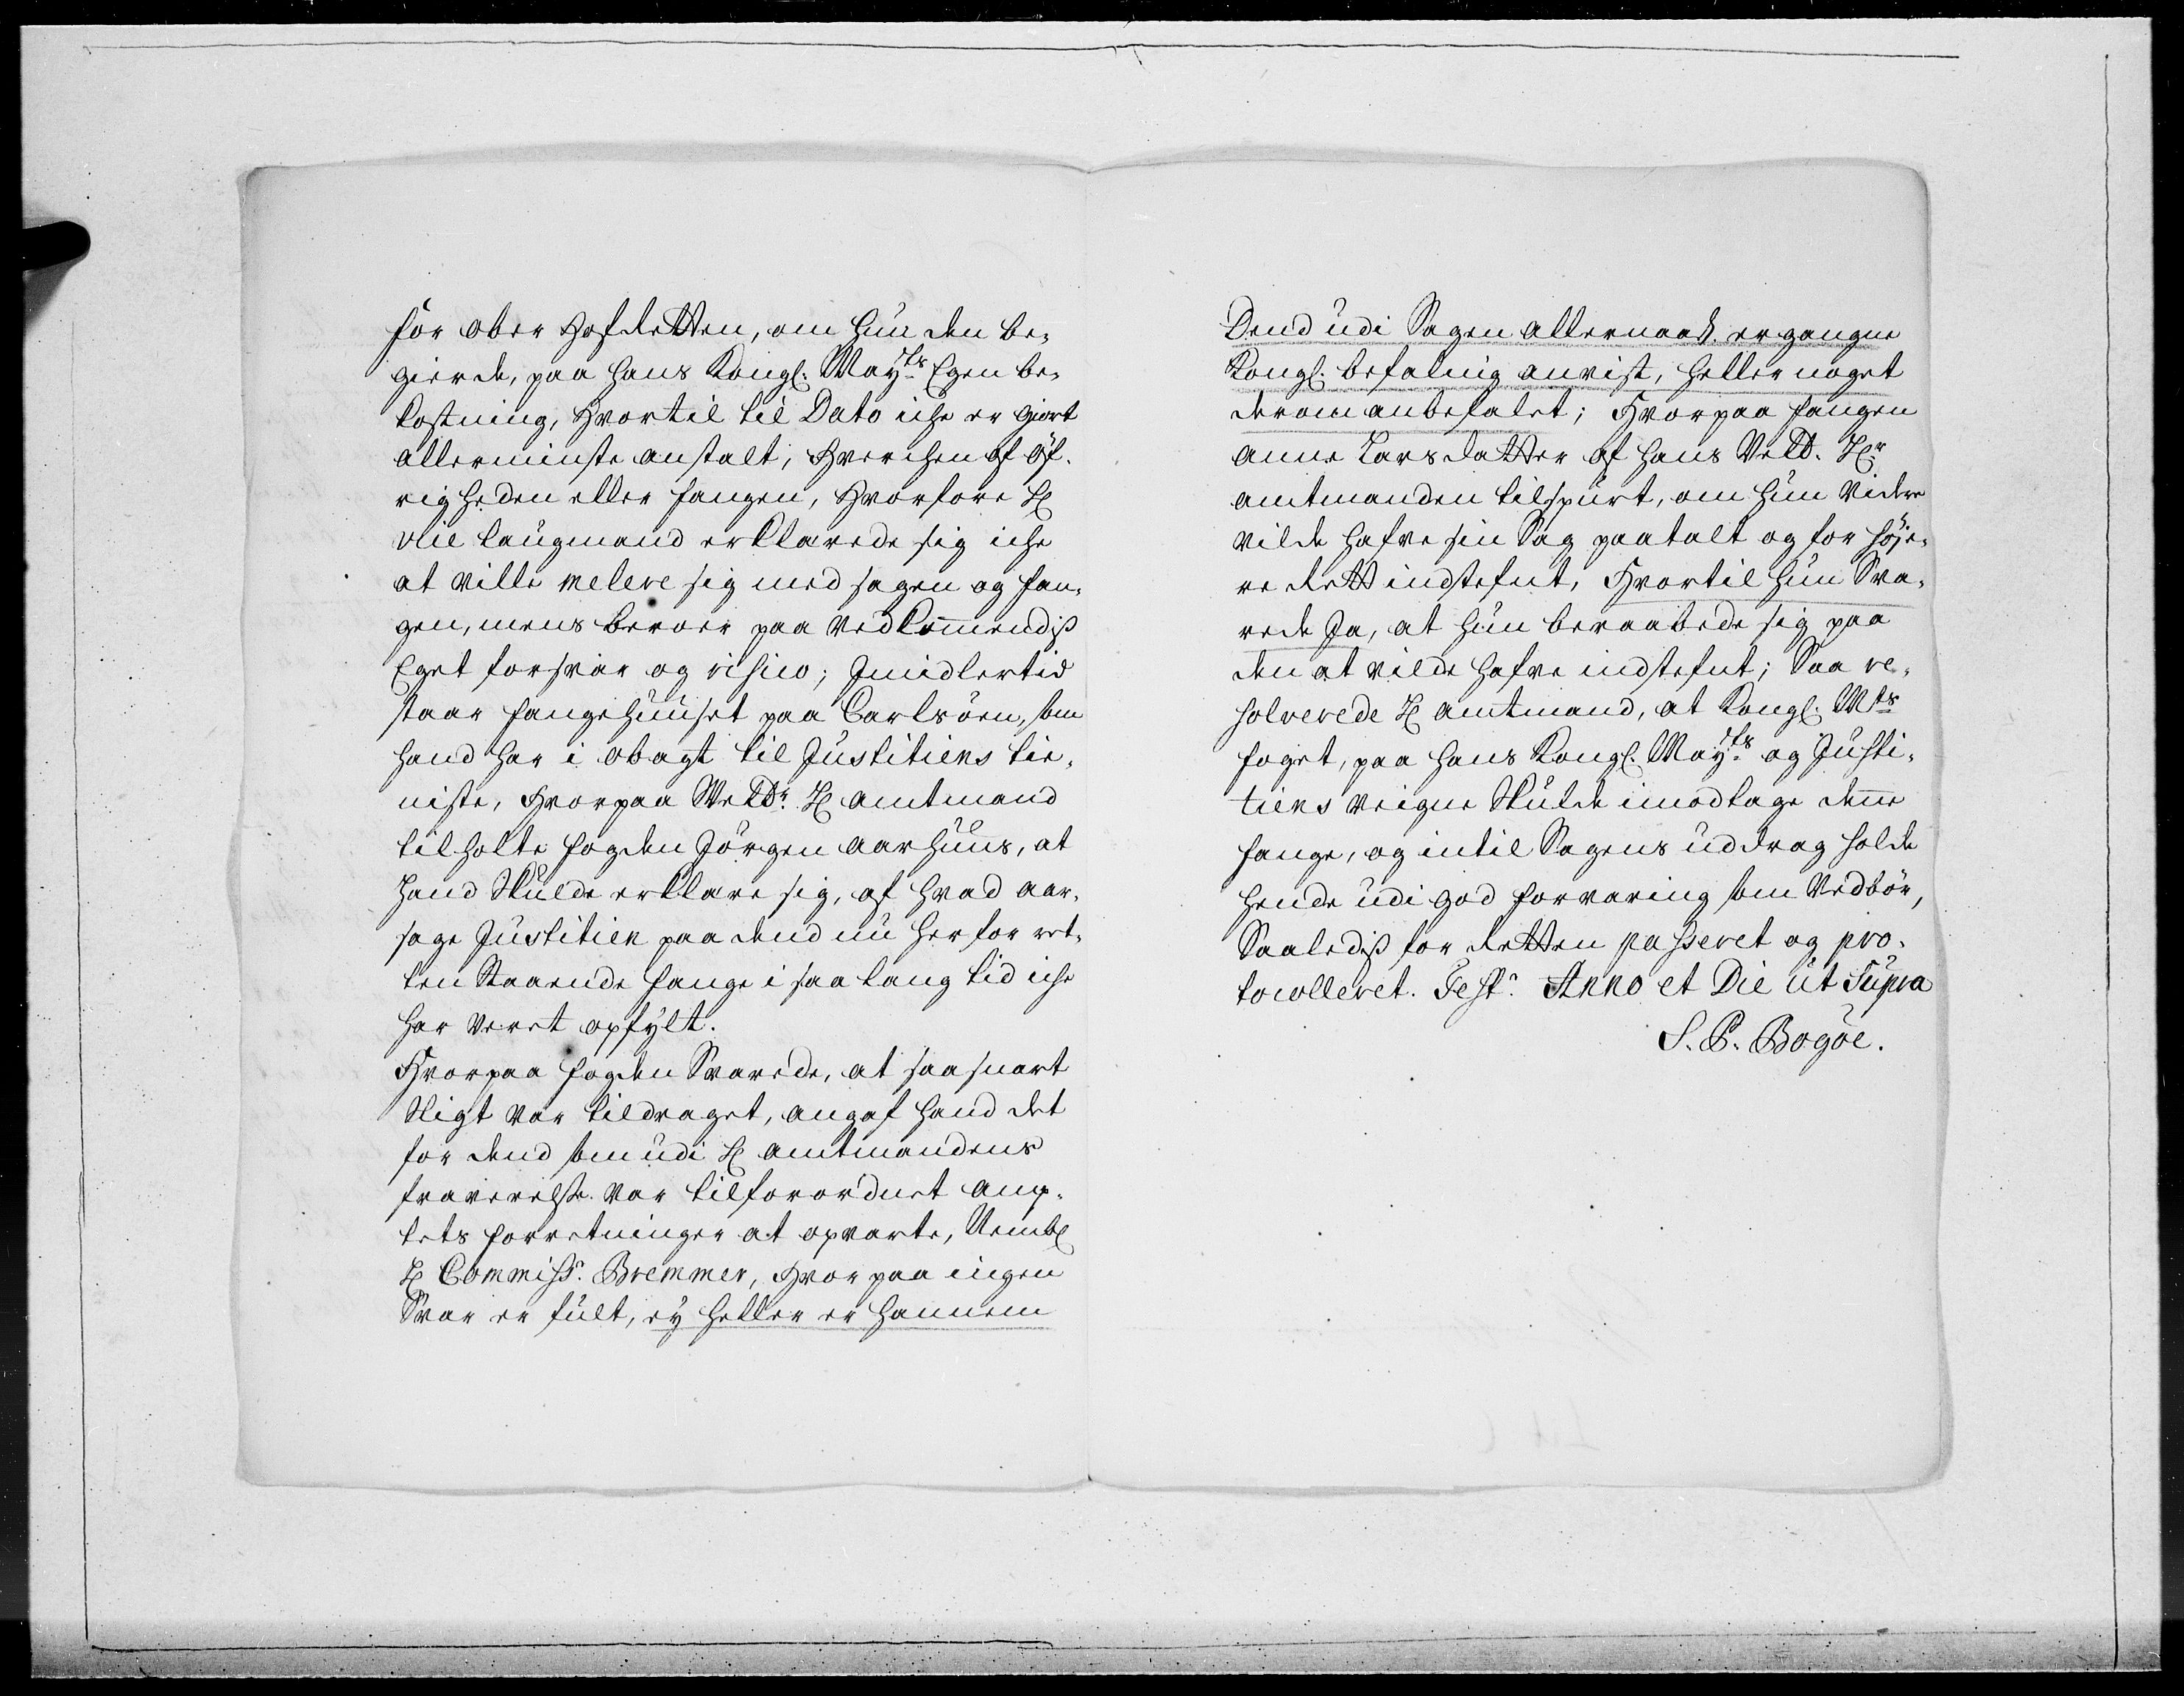 for ober Hofdretten, om hun den be-
gierde, paa hans Kongl. Mayts Egen be-
kostning, Hvortil til Dato iche er giort
allerminste anstalt, Hverchen af Øf-
righeden eller fangen, Hvorfore Hr
vlie laugmand erklærede sig iche
at ville melere sig med sagen og fan-
gen, mens beroer paa Vedkommendis
Eget forsvar og risico; Imidlertid
staar fangehuuset paa Carlsøen, som
hand har i obagt til Justitiens tie-
niste, Hvorpaa Velbr. Hr amtmand
tilholte fogden Jørgen Aarhuus, at
Hand Skulde erklære sig, af hvad aar-
sage Justitien paa dend nu her for ret-
ten Staaende fange i saa lang tid iche
har veret opfylt.
Hvorpaa fogden Svarede, at saa snart
Sligt var tildraget, angaf hand det
for dend som udi Hr amtmandens
fraverelse var tilforordnet amp-
tets forretninger at opvarte, Nembl
Hr Commiss. Bremmer, Hvor paa ingen
Svar er fult, ey heller er hannem
Dend udi Sagen allernaad. ergangne
Kongl. befaling anvist, heller noget
derom anbefalet; Hvorpaa fangen
Anne Larsdatter af hans Velb. Hr
amtmanden tilspurt, om hun videre
vilde hafve sin Sag paatalt og for höje-
re drett indstefnt, Hvortil hun Sva-
rede Ja, at hun beraabede sig paa
den at vilde hafve indstefnt; Saa re-
solverede Hr amtmand, at Kongl. Mts
foget, paa hans Kongl. Mayts og Justi-
tiens veigne Skulde imodtage denne
fange, og intil Sagens uddrag holde
hende udi god forvaring som vedbör,
Saaledis for dretten passeret og pro-
tocolleret. Test. Anno et Die ut Supra
S. P. Bogøe.